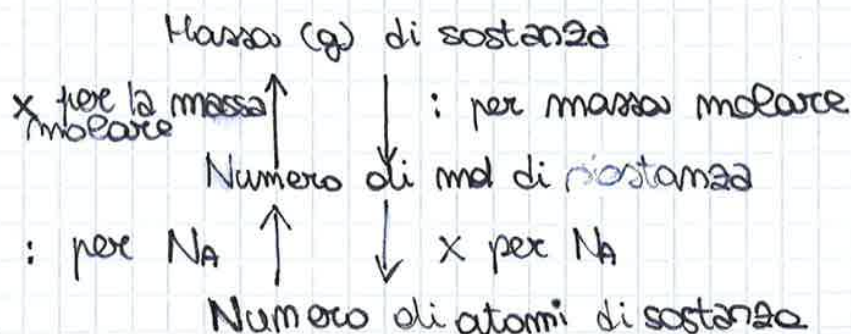 Massa (g) di sostanza
x per la massa molare
: per massa molare
Numero di mol di sostanza
: per NA
x per NA
Numero di atomi di sostanza